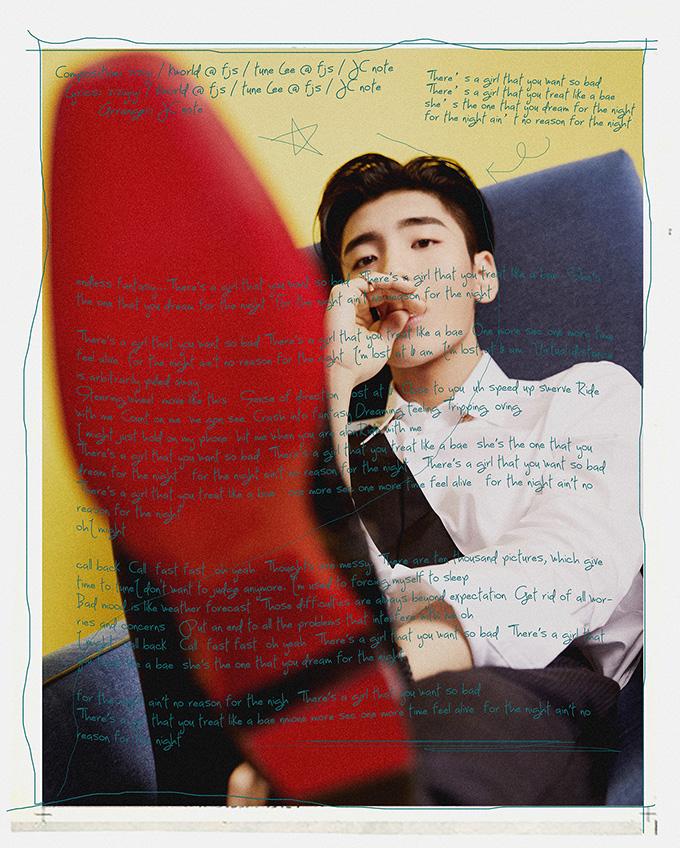 / kworld @ fjs / tune Lee @ fjs / JC note
/ kworld @ fjs / tune Lee @ fjs / JC note
Arranger: JC note
There's a girl that you want so bad
There's a girl that you treat like a bae
she's the one that you dream for the night
for the night ain't no reason for the night
endless fantasy... There's a girl that you want so bad There's a girl that you treat like a bae She's
the one that you dream for the night for the night ain't no reason for the night
There's a girl that you want so bad There's a girl that you treat like a bae One more sec one more time
feel alive for the night ain't no reason for the night I'm lost at 6 am I'm lost at 6 am Virtual distance
s arbitrarily piled away
Stearing wheel move like this Sense of direction lost at Close to you uh speed up swerve Ride
with me Count on me we gon see Crash into fantasy Dreaming feeling Tripping oving
I might just hold on my phone hit me when you are with me
There's a girl that you want so bad There's a girl that you treat like a bae she's the one that you
dream for the night for the night ain't no reason for the night There's a girl that you want so bad
There's a girl that you treat like a bae one more sec one more time feel alive for the night ain't no
reason for the night
oh I might
call back Call fast fast oh yeah Thoughts are messy There are ten thousand pictures, which give
time to tune I don't want to judge anymore. I'm used to forcing myself to sleep
Bad mood is like weather forecast Those difficulties are always beyond expectation Get rid of all wor-
ries and concerns Put an end to all the problems that interfere to me oh
I might call back Call fast fast oh yeah There's a girl that you want so bad There's a girl that
you treat like a bae she's the one that you dream for the night
for the night ain't no reason for the nigh There's a girl that you want so bad
There's a girl that you treat like a bae one more sec one more time feel alive for the night ain't no
reason for the night